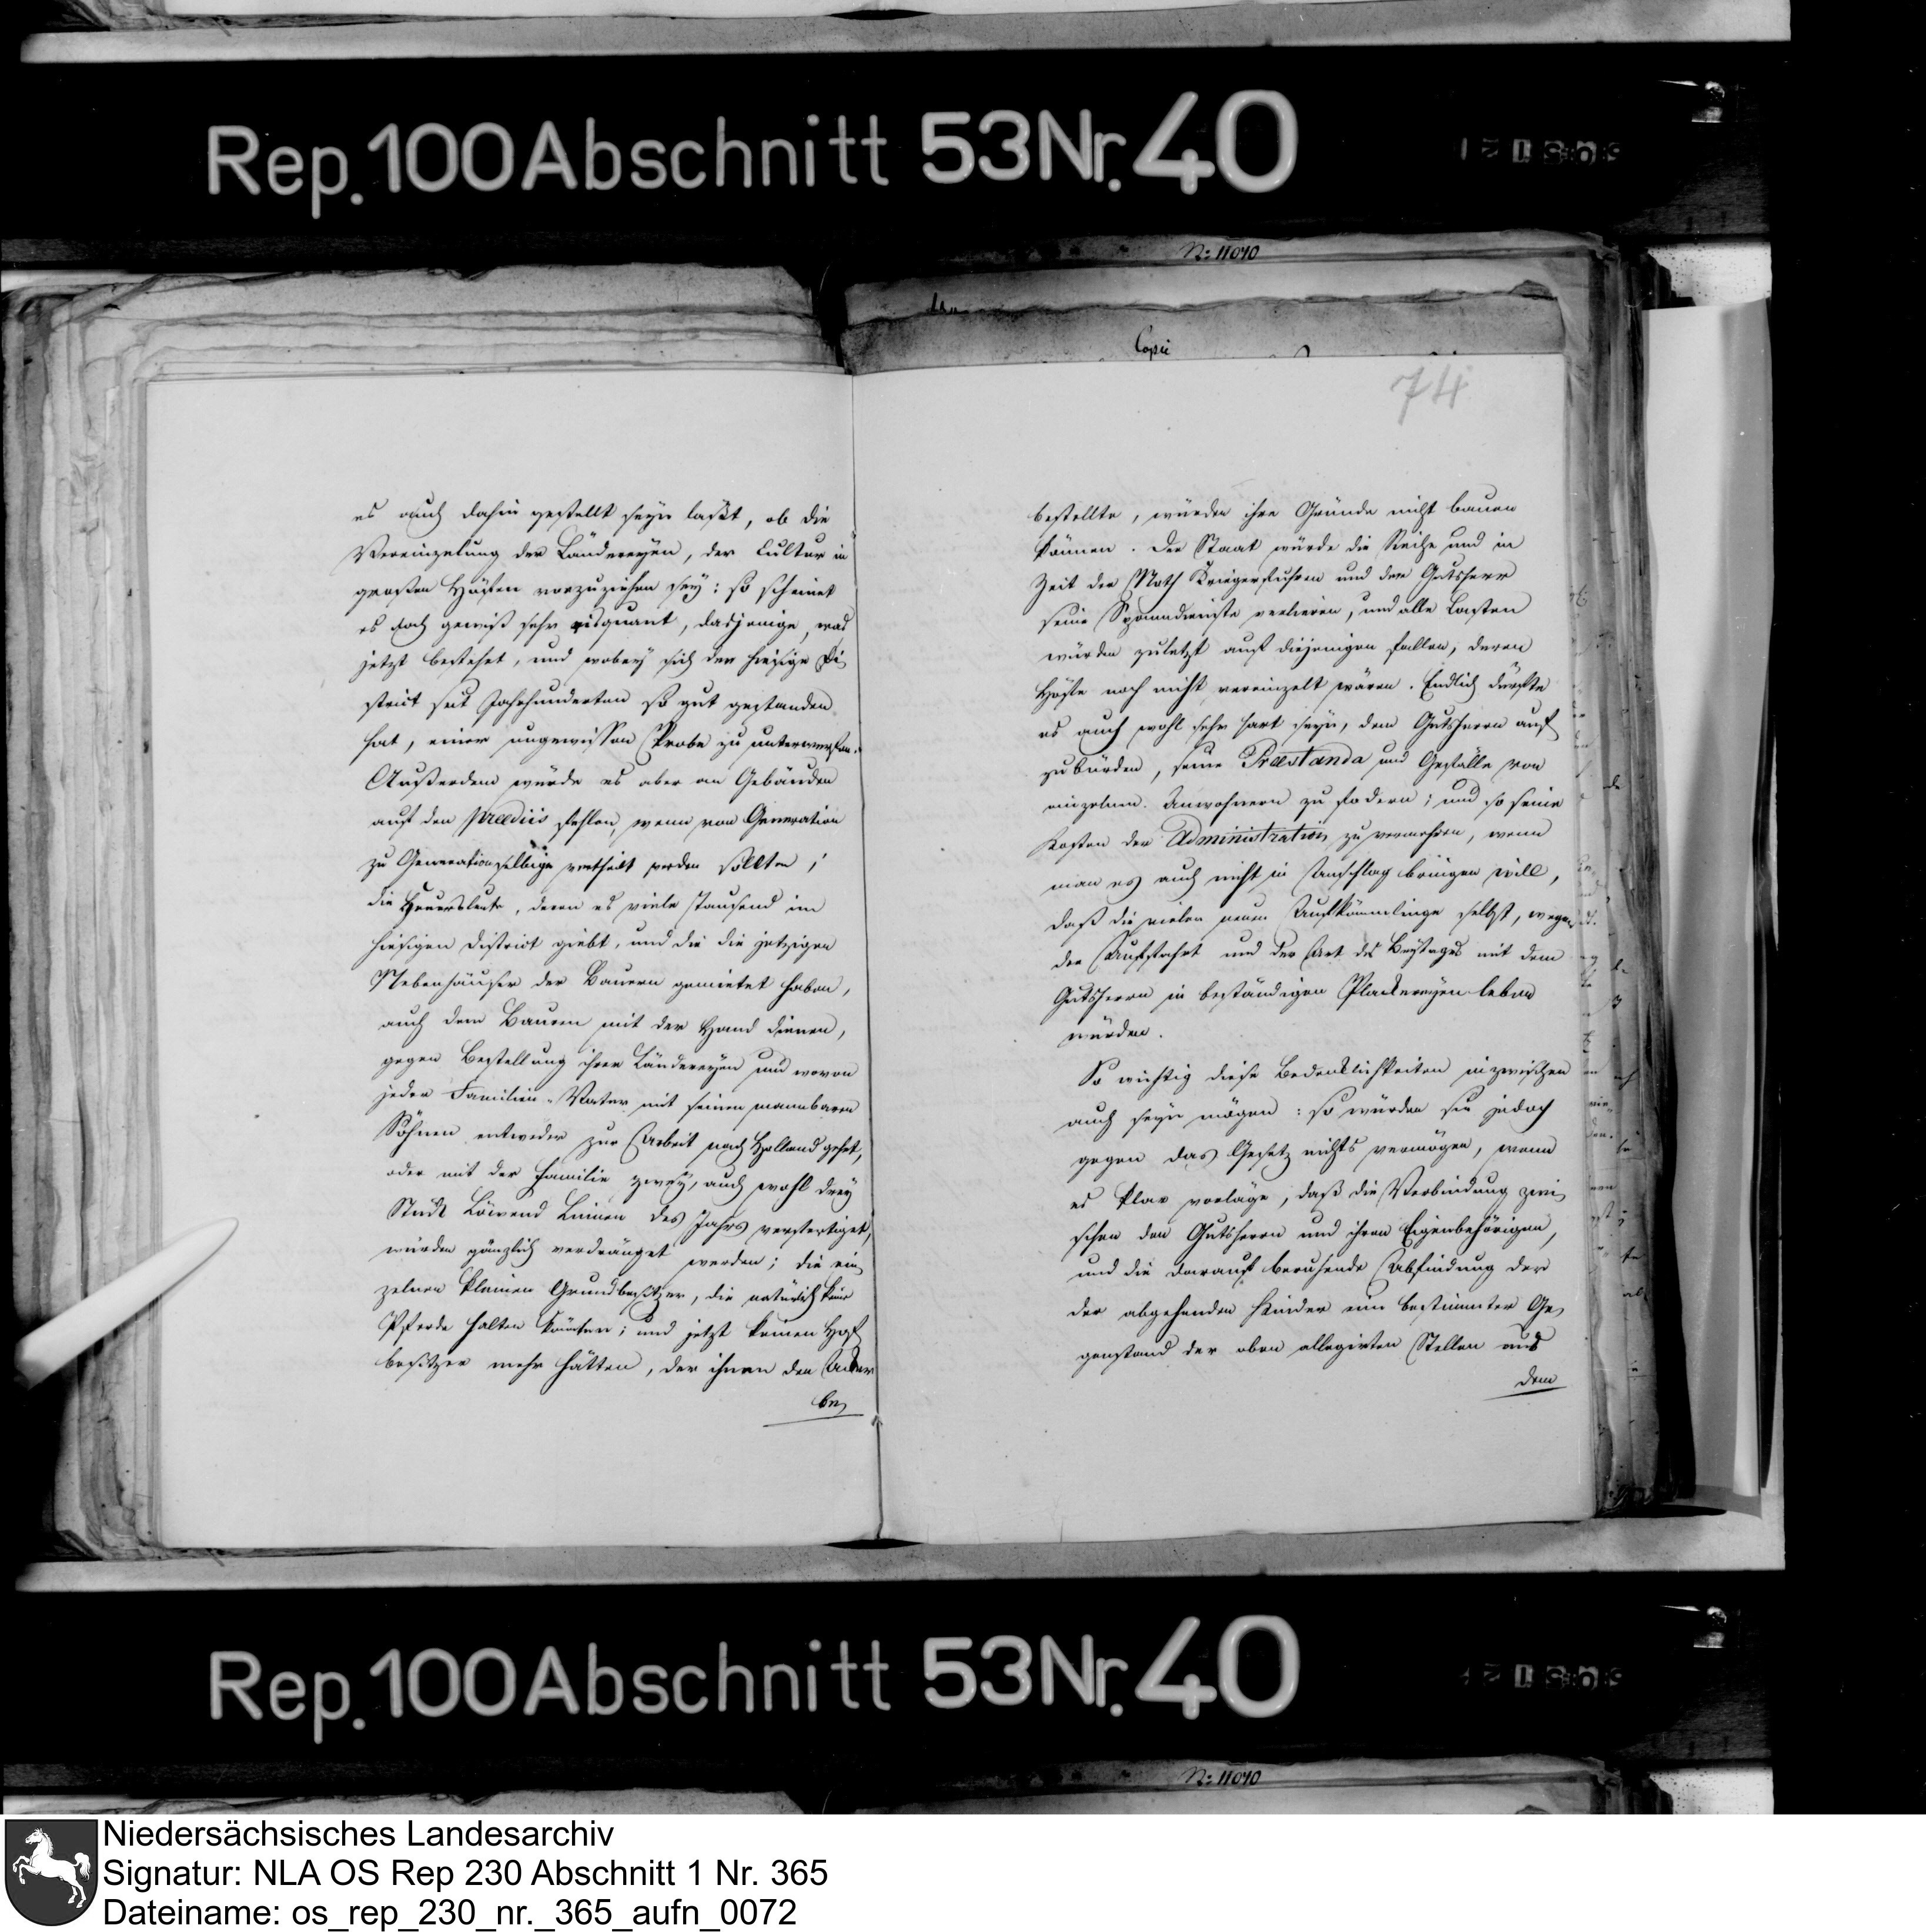 Rep. 100 Abschnitt 53 Nr. 40
No 11040
Copie
74
es auch dahin gestellt seyn läßt, ob die
Vereinzelung der Ländereyen, der Cultur in
großen Höfen vorzuziehen sey: so scheinet
es doch gewiß sehr risquant, dasjenige, was
jetzt bestehet, und wobey sich der hiesige Di
strict seit Jahrhunderten so gut gestanden
hat, einer ungewissen Probe zu unterwerfen.
Außerdem würde es aber an Gebäuden
auf den praediis fehlen, wenn von Generation
zu Generation selbige vertheilt werden sollten;
die Heuersleute, deren es viele Tausend im
hiesigen District giebt, und die die jetzigen
Nebenhäuser der Bauern gemietet haben,
auch dem Bauren mit der Hand dienen,
gegen Bestellung ihrer Ländereyen und wovon
jeder Familien-Vater mit seinen mannbaren
Söhnen entweder zur Arbeit nach Holland gehet,
oder mit der Familie zwey, auch wohl drey
Stück Löwend Linnen des Jahrs verfertiget,
würden gänzlich verdränget werden; die ein
zelnen kleinen Grundbesitzer, die natürlich keine
Pferde halten könnten; und jetzt keinen Hof
besitzer mehr hätten, der ihnen den Acker
be
bestellte, würden ihre Gründe nicht bauen
können. Der Staat würde die Reihe und in
Zeit der Noth Kriegerfuhren und der Gutsherr
seine Spanndienste verlieren, und alle Lasten
würden zuletzt auf diejenigen fallen, deren
Höfe noch nicht vereinzelt wären. Endlich dürfte
es auch wohl sehr hart seyn, dem Gutsherrn auf
zubürden, seine Praestanda und Gefälle von
einzelnen Anwohnern zu fodern; und so seine
Kosten der Administration zu vermehren, wenn
man es auch nicht in Anschlag bringen will,
daß die vielen neuen Aufkömmlinge selbst, wegen
der Auffahrt und der Art des Beytrags mit dem
Gutsherrn in beständigen Plackereyen leben
würden.
So wichtig diese Bedenklichkeiten inzwischen
auch seyn mögen: so würden sie jedoch
gegen das Gesetz nichts vermögen, wenn
es klar vorläge, daß die Verbindung zwi
schen den Gutsherrn und ihren Eigenbehörigen,
und die darauf beruhende Abfindung der
der abgehenden Kinder ein bestimmter Ge
genstand der oben allegirten Stellen aus
dem
Rep. 100 Abschnitt 53 Nr. 40
No 11040
Niedersächsisches Landesarchiv
Signatur: NLA OS Rep 230 Abschnitt 1 Nr. 365
Dateiname: os_rep_230_nr._365_aufn_0072